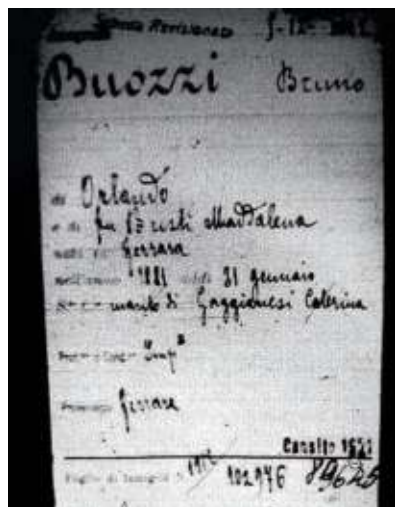 Scheda Revisionata
Buozzi Bruno
di Orlando
e di fu Maddalena
nat di Ferrara
nell'anno 1881 addì 31 gennaio
marito di Gaggianesi Caterina
"Imp"
Ferrara
Censito 1921
Foglio di famiglia
102976 89626